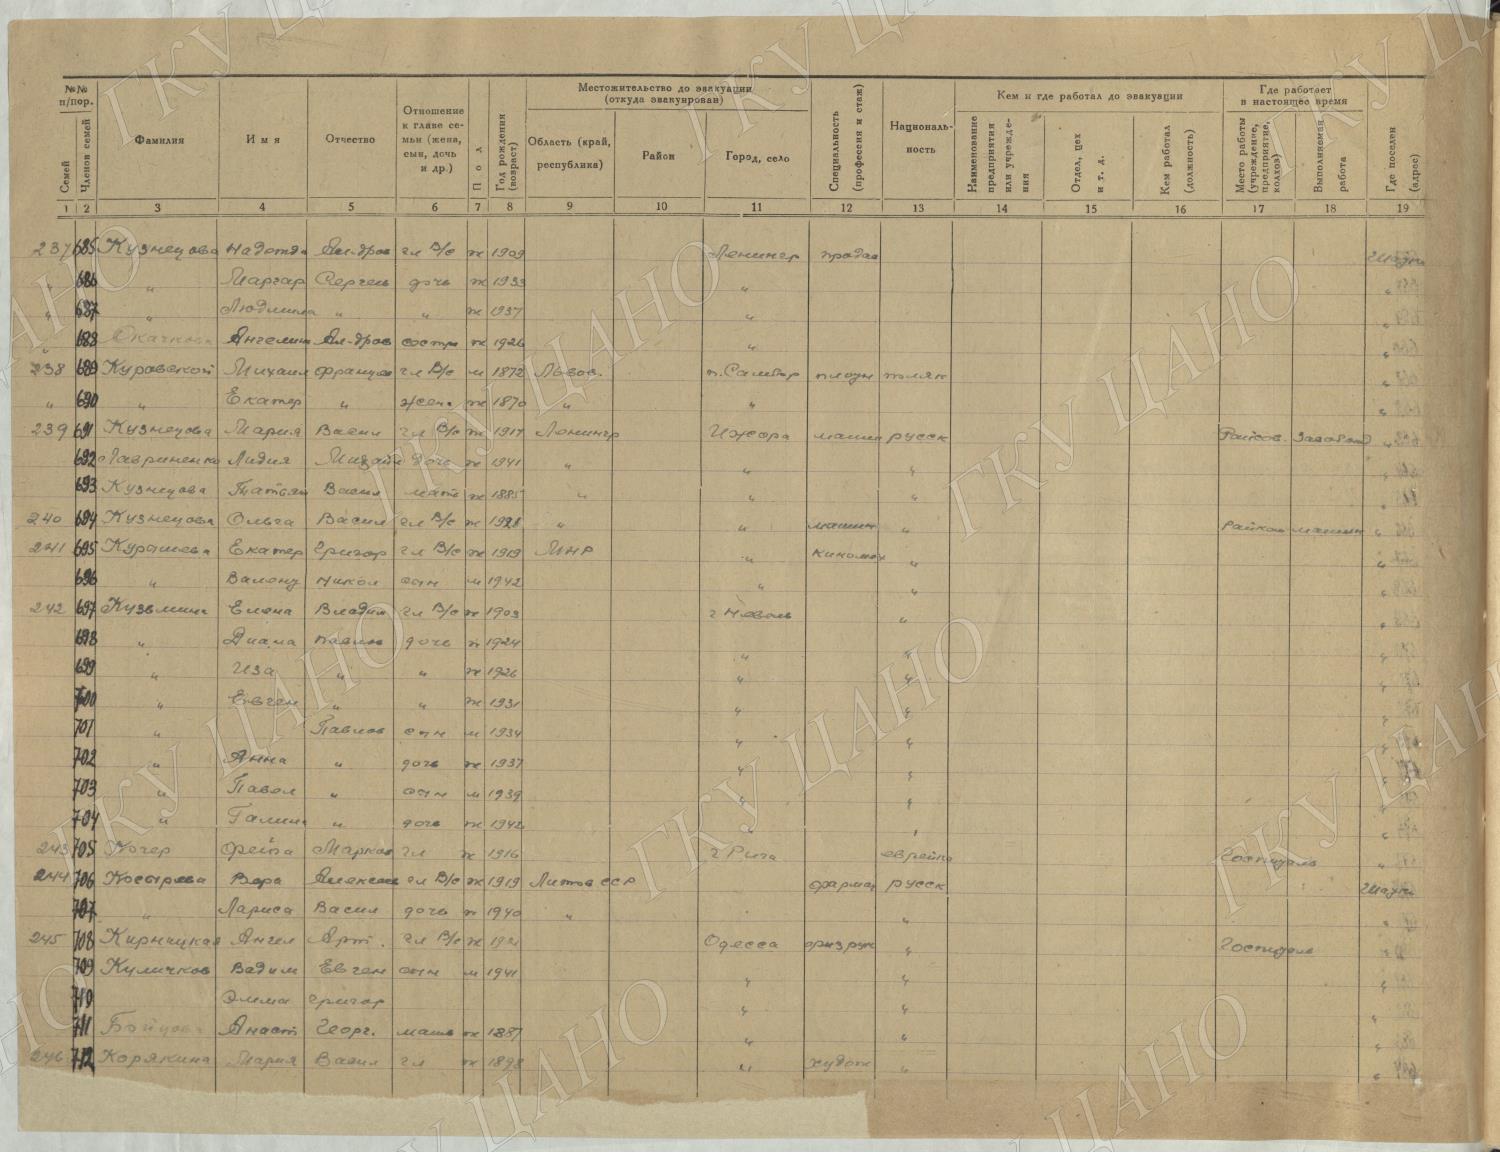 №№ п/пор.
Семей
Членов семей
Фамилия
Имя
Отчество
Отношение к главе семьи (жена, сын, дочь и др.)
Пол
Год рождения (возраст)
Местожительство до эвакуации (откуда эвакуирован)
Область (край, республика)
Район
Город, село
Специальность (профессия и стаж)
Националь-ность
Кем и где работал до эвакуации
Наименование предприятия или учреждения
Отдел, цех и т. д.
Кем работал (должность)
Где работает в настоящее время
Место работы (учреждение, предприятие, колхоз)
Выполняемая работа
Где поселен (адрес)
1 2 3 4 5 6 7 8 9 10 11 12 13 14 15 16 17 18 19
237 685 Кузнецова Надежда Ал-дров гл В/с ж 1909 Ленингр продав
„ 686 „ Маргар Сергеев дочь ж 1933 „
„ 687 „ Людмила „ „ ж 1937 „
„ 688 Ангелин Ал-дров сестра ж 1926 „
238 689 Куровской Михаил францев гл В/с м 1872 Львов. г. Самбор плотн поляк
„ 690 „ Екатер „ жен. ж 1870 „ „
239 691 Кузнецова Мария Васил гл В/с ж 1917 Ленингр Ижора машин русск Райсов.
692 Лавриненко Лидия Михайл дочь ж 1941 „ „ „
693 Кузнецова Татьян Васил мать ж 1885 „ „ „
240 694 Кузнецова Ольга Васил гл В/с ж 1921 „ „ машин „ Райком машин „
241 695 Курашева Екатер Григор гл В/с ж 1919 ЛНР „ киномех „ „
696 „ Валент Никол сын м 1942 „ „ „
242 697 Кузьмина Елена Владим гл В/с ж 1903 г Невель „ „
698 „ Диана Павлов дочь ж 1924 „ „ „
699 „ Иза „ „ ж 1926 „ „ „
700 „ Евген „ „ ж 1931 „ „ „
701 „ Павлов сын м 1934 „ „ „
702 „ Анна „ дочь ж 1937 „ „ „
703 „ Павел „ сын м 1939 „ „ „
704 „ Галина „ дочь ж 1942 „ „ „
243 705 Кочер Фейга Марков гл ж 1916 г Рига еврейка Госпиталь „
244 706 Косырева Вера Алексеев гл В/с ж 1919 Литов ССР фармац русск
707 „ Лариса Васил дочь ж 1940 „ „ „
245 708 Кирницкая Ангел Арт. гл В/с ж 1921 Одесса физрук „ Госпиталь „
709 Куличков Вадим Евген сын м 1941 „ „ „
710 Эмма Григор „ „ „
711 Анаст Георг. мать ж 1887 „ „ „
246 712 Корякина Мария Васил гл ж 1898 „ худож „ „
ГКУ ЦАНО